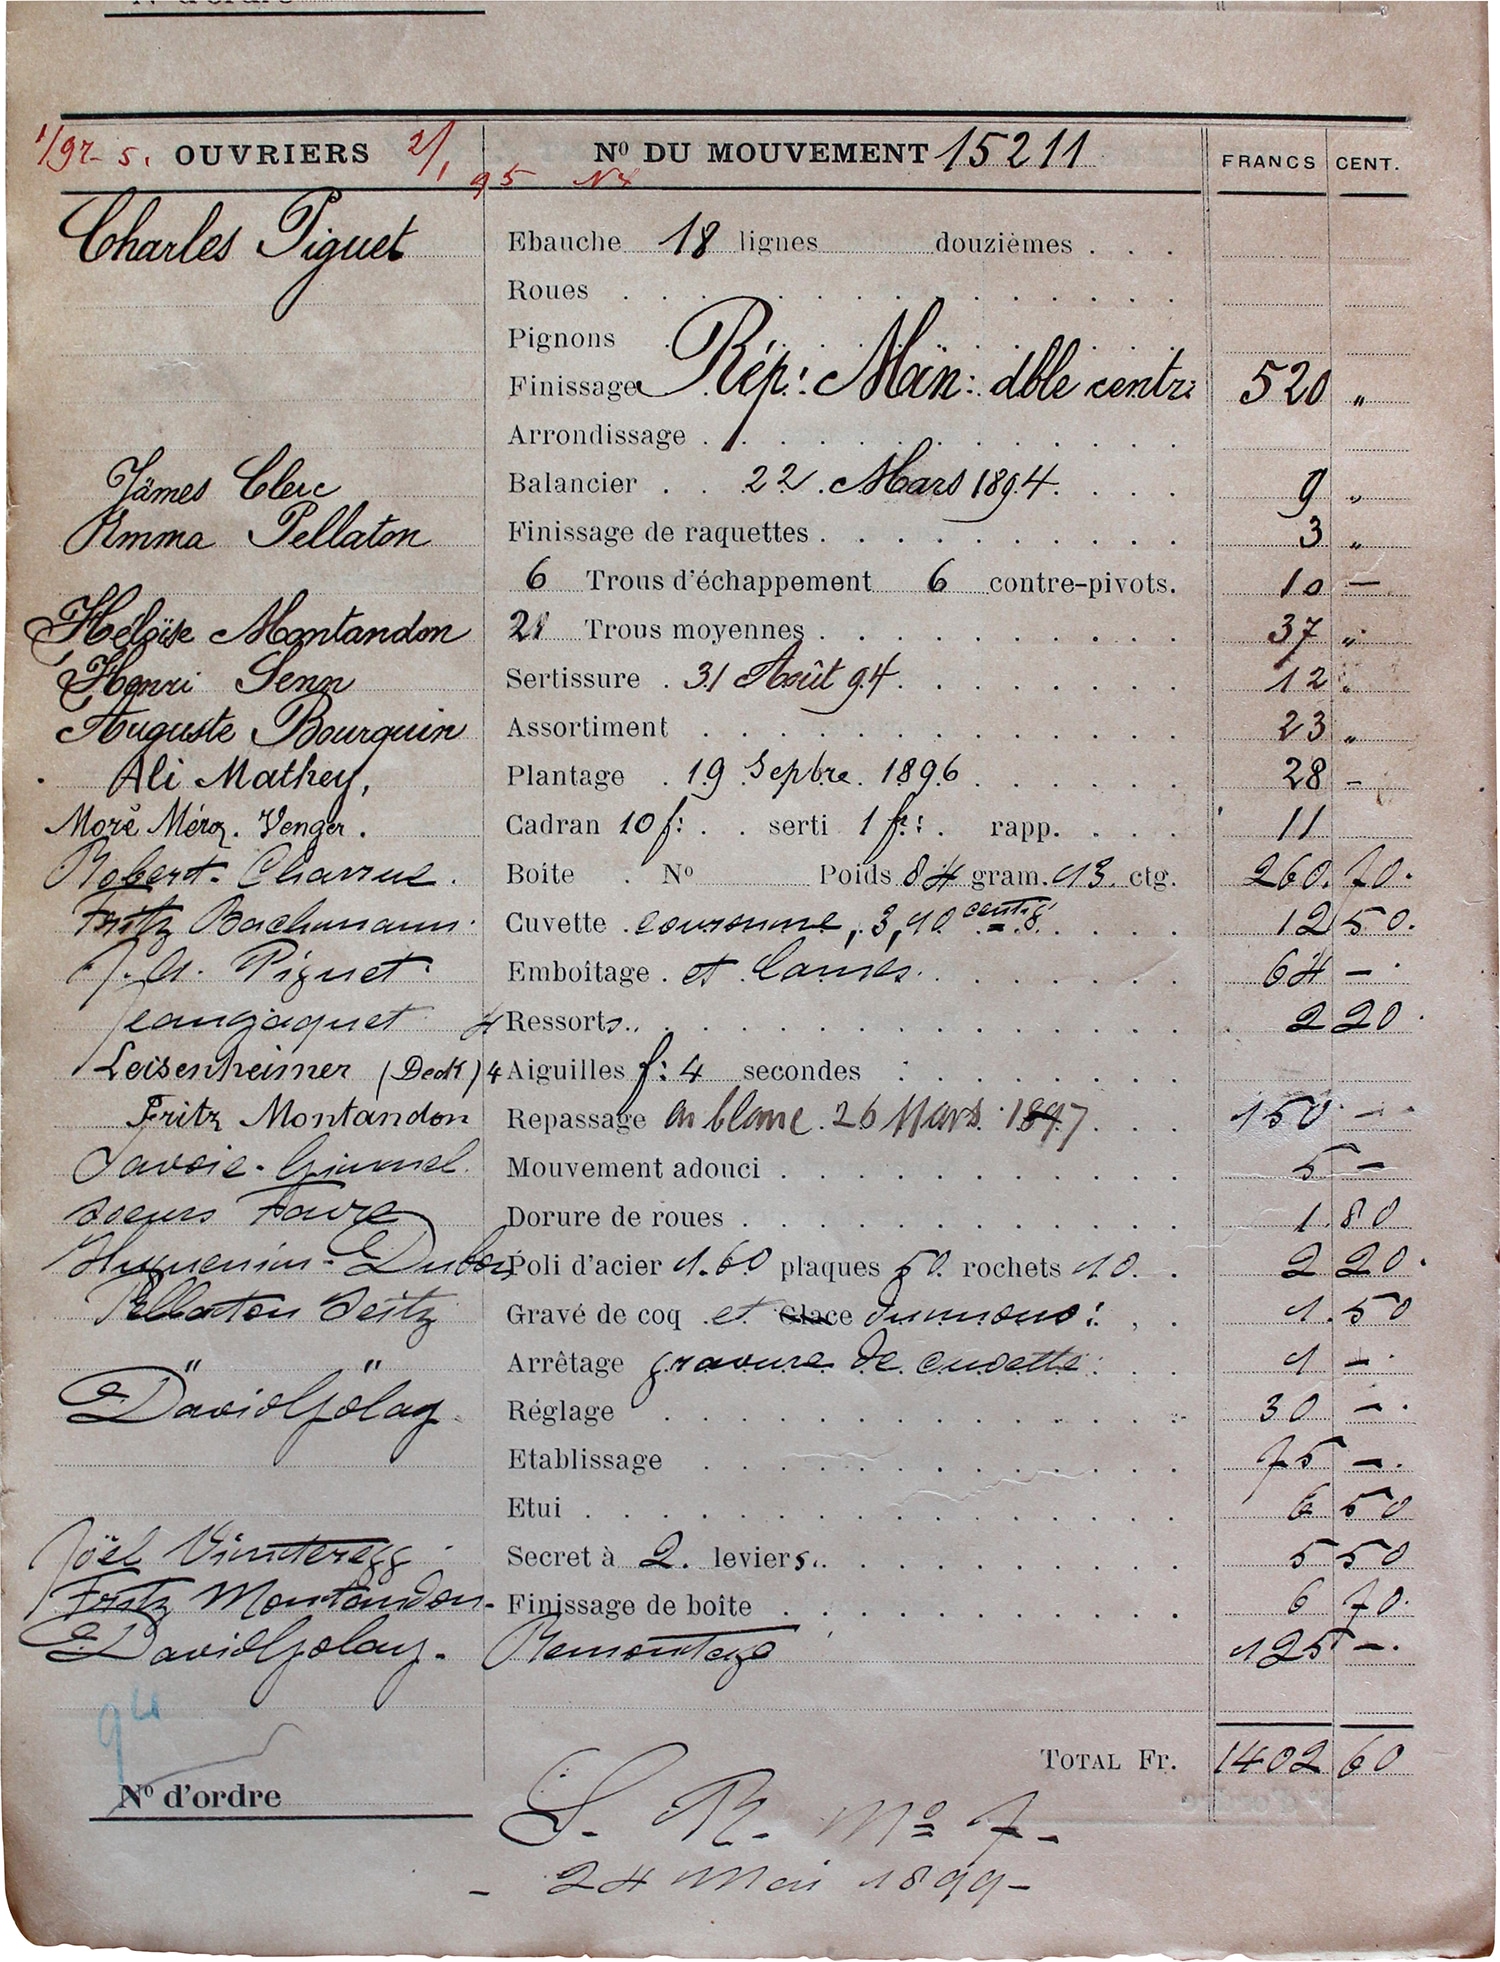 N° d'ordre
1/97 5. OUVRIERS 2/1 95 N° DU MOUVEMENT 15211 FRANCS CENT.
Charles Piguet Ebauche 18 lignes douzièmes . . .
Roues
Pignons
Finissage Rép: Màn: dble centre 520 „
Arrondissage
Jämes Clerc Balancier 22 Mars 1894. 9 „
Emma Pellaton Finissage de raquettes 3 „
6 Trous d'échappement 6 contre-pivots. 10 —
Héloïse Montandon 21 Trous moyennes 37 „
Henri Senn Sertissure 31 Août 94. 12 „
Auguste Bourquin Assortiment 23 „
Ali Mathey, Plantage 19 Septbre. 1896 28 –
Moré Méroz. Venger. Cadran 10 f: serti 1 fr: rapp. 11
Robert-Charrue. Boite N° Poids 84 gram. 13 ctg. 260. 70.
Fritz Bachmann. Cuvette couronne, 3,10 centig. 12 50.
J. A. Piguet. Emboîtage et Cames. 64 —
Jeanjaquet 4 Ressorts.. 2 20
Leisenheimer (Deck) 4 Aiguilles f: 4 secondes
Fritz Montandon Repassage en blanc. 26 Mars. 1897 150 —
Savoie-Gimmel. Mouvement adouci 5 —
soeurs Favre Dorure de roues 1. 80
Huguenin-Dubois Poli d'acier 1.60 plaques 50. rochets 10. 2 20.
Pellaton Seitz Gravé de coq et Glace du mouv: 1. 50
" " Arrêtage gravure de cuvette 1 —
DavidGolay. Réglage 30 —
Etablissage 75 —
Etui 6 50
Joël Vinteregg Secret à 2. leviers.. 5 50
Fritz Montandon- Finissage de boîte 6 70.
DavidGolay. Remontage 125 —
94
TOTAL Fr. 1402 60
N° d'ordre
S. R. M° 7-
- 24 Mai 1899-